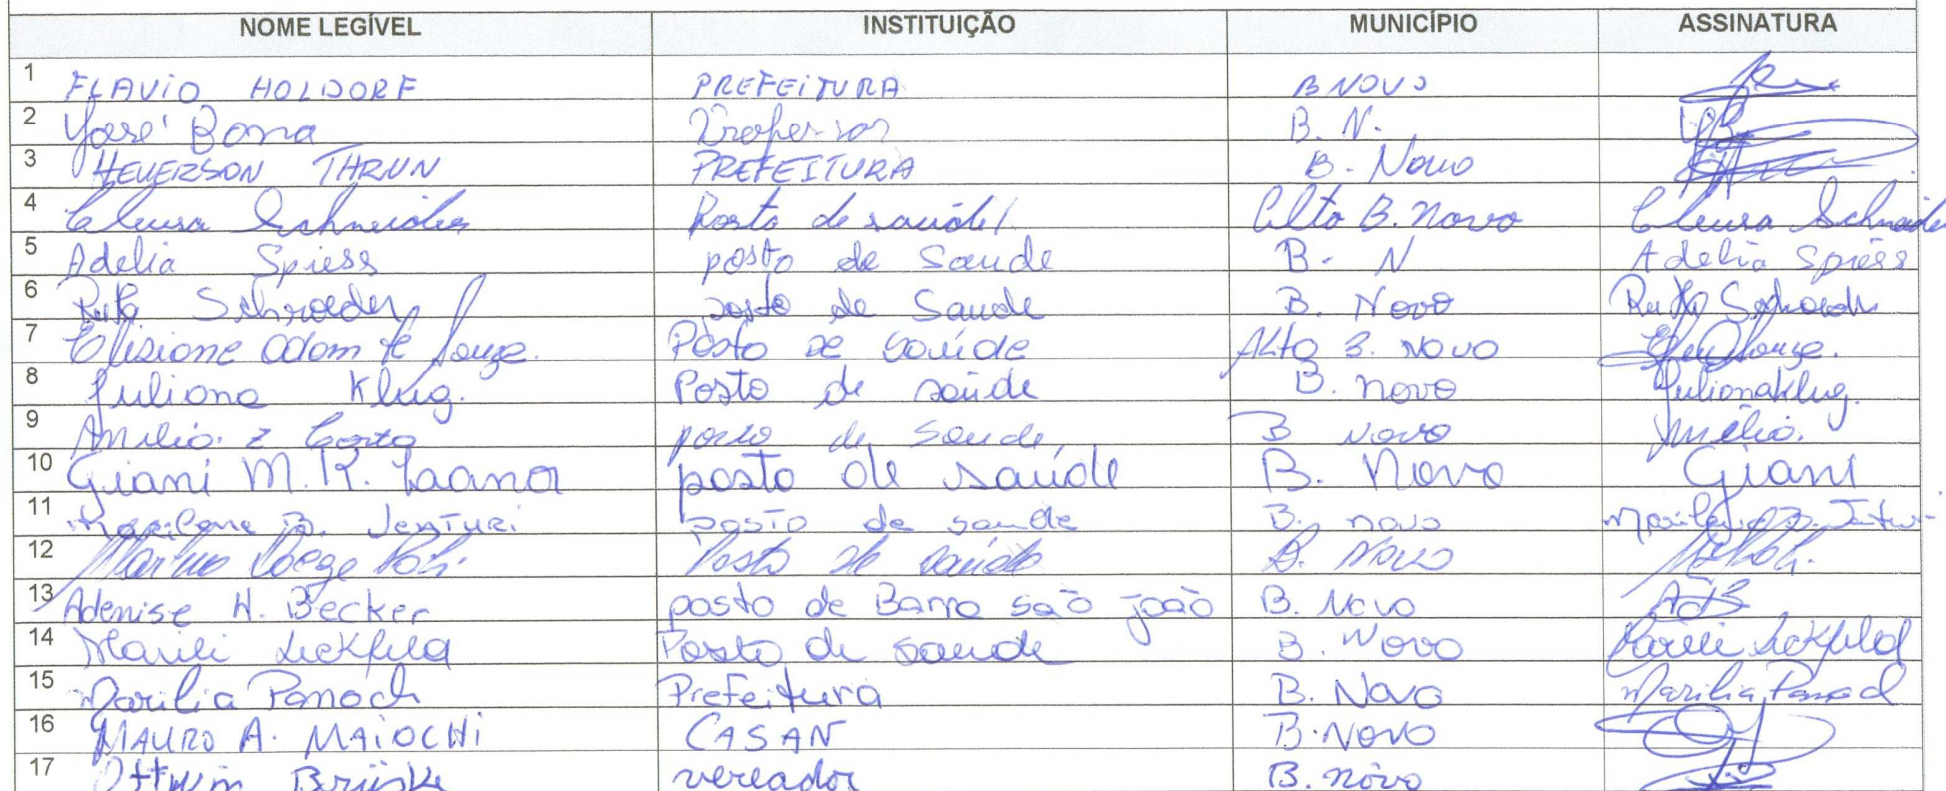 NOME LEGÍVEL INSTITUIÇÃO MUNICÍPIO ASSINATURA
1 FLAVIO HOLDORF PREFEITURA B NOVO
2 José Bona Professor B. N.
3 HEVERSON THRUN PREFEITURA B. Novo
4 Cleusa Schneider Posto de saúde Alto B. Novo Cleusa Schneider
5 Adelia Spiess posto de Saude B. N Adelia Spiess
6 Schroeder posto de Saude B. Novo
7 Elisione Adam de Souza. Posto de saúde Alto B. NOVO
8 Juliana Klug. Posto de saúde B. novo Juliana Klug.
9 posto de Saude B novo
10 Giani M. R. posto de saúde B. Novo Giani
11 B. posto de saude B. novo
12 Posto de saúde B. Novo
13 Adenise H. Becker posto de Barra são joão B. Novo
14 Marili Leckfeld Posto de saude B. Novo Leckfeld
15 Marilia Panoch Prefeitura B. Novo Marilia Panoch
16 MAURO A. MAIOCHI CASAN B. NOVO
17 Brüske vereador B. novo